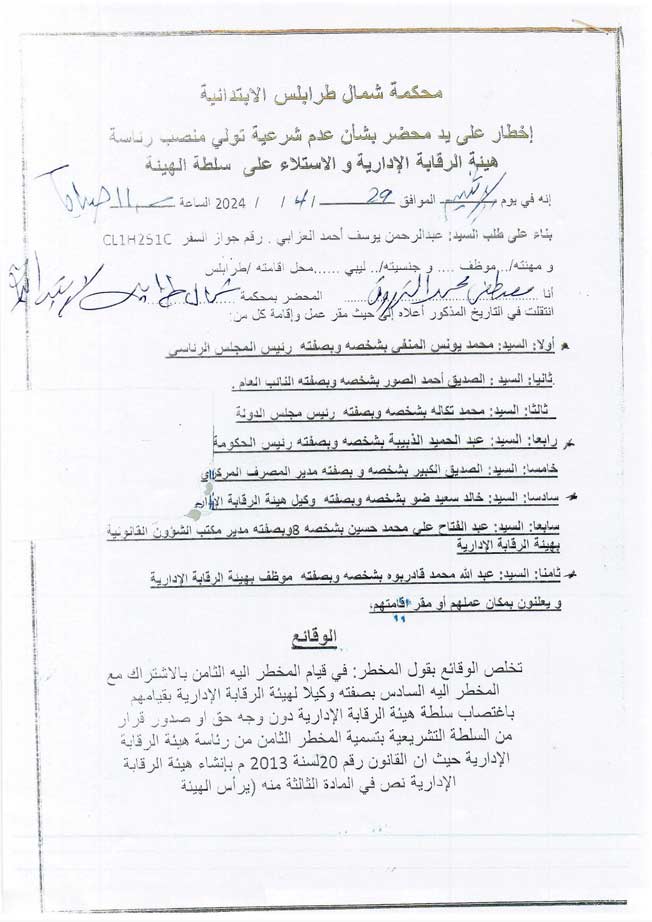 محكمة شمال طرابلس الابتدائية
إخطار على يد محضر بشأن عدم شرعية تولي منصب رئاسة
هيئة الرقابة الإدارية و الاستلاء على سلطة الهيئة
إنه في يوم الموافق 29 / 4 / 2024 الساعة صباحا
بناء على طلب السيد: عبدالرحمن يوسف أحمد العزابي . رقم جواز السفر CL1H2S1C
و مهنته/.. موظف .... و جنسيته/.. ليبي ......محل اقامته /طرابلس
أنا مصطفى محمد المحضر بمحكمة شمال طرابلس الابتدائية
انتقلت في التاريخ المذكور أعلاه إلى حيث مقر عمل وإقامة كل من:
أولا: السيد: محمد يونس المنفي بشخصه وبصفته رئيس المجلس الرئاسي
ثانيا: السيد : الصديق أحمد الصور بشخصه وبصفته النائب العام .
ثالثا: السيد: محمد تكاله بشخصه وبصفته رئيس مجلس الدولة
رابعا: السيد: عبد الحميد الذبيبة بشخصه وبصفته رئيس الحكومة
خامسا: السيد: الصديق الكبير بشخصه و بصفته مدير المصرف المركزي
سادسا: السيد: خالد سعيد ضو بشخصه وبصفته وكيل هيئة الرقابة الإدارية
سابعا: السيد: عبد الفتاح علي محمد حسين بشخصه 8وبصفته مدير مكتب الشؤون القانونية
بهيئة الرقابة الإدارية
ثامنا: السيد: عبد الله محمد قادربوه بشخصه وبصفته موظف بهيئة الرقابة الإدارية
و يعلنون بمكان عملهم أو مقر اقامتهم:
الوقائع
تخلص الوقائع بقول المخطر: في قيام المخطر اليه الثامن بالاشتراك مع
المخطر اليه السادس بصفته وكيلا لهيئة الرقابة الإدارية بقيامهم
باغتصاب سلطة هيئة الرقابة الإدارية دون وجه حق او صدور قرار
من السلطة التشريعية بتسمية المخطر الثامن من رئاسة هيئة الرقابة
الإدارية حيث ان القانون رقم 20لسنة 2013 م بإنشاء هيئة الرقابة
الإدارية نص في المادة الثالثة منه (يرأس الهيئة